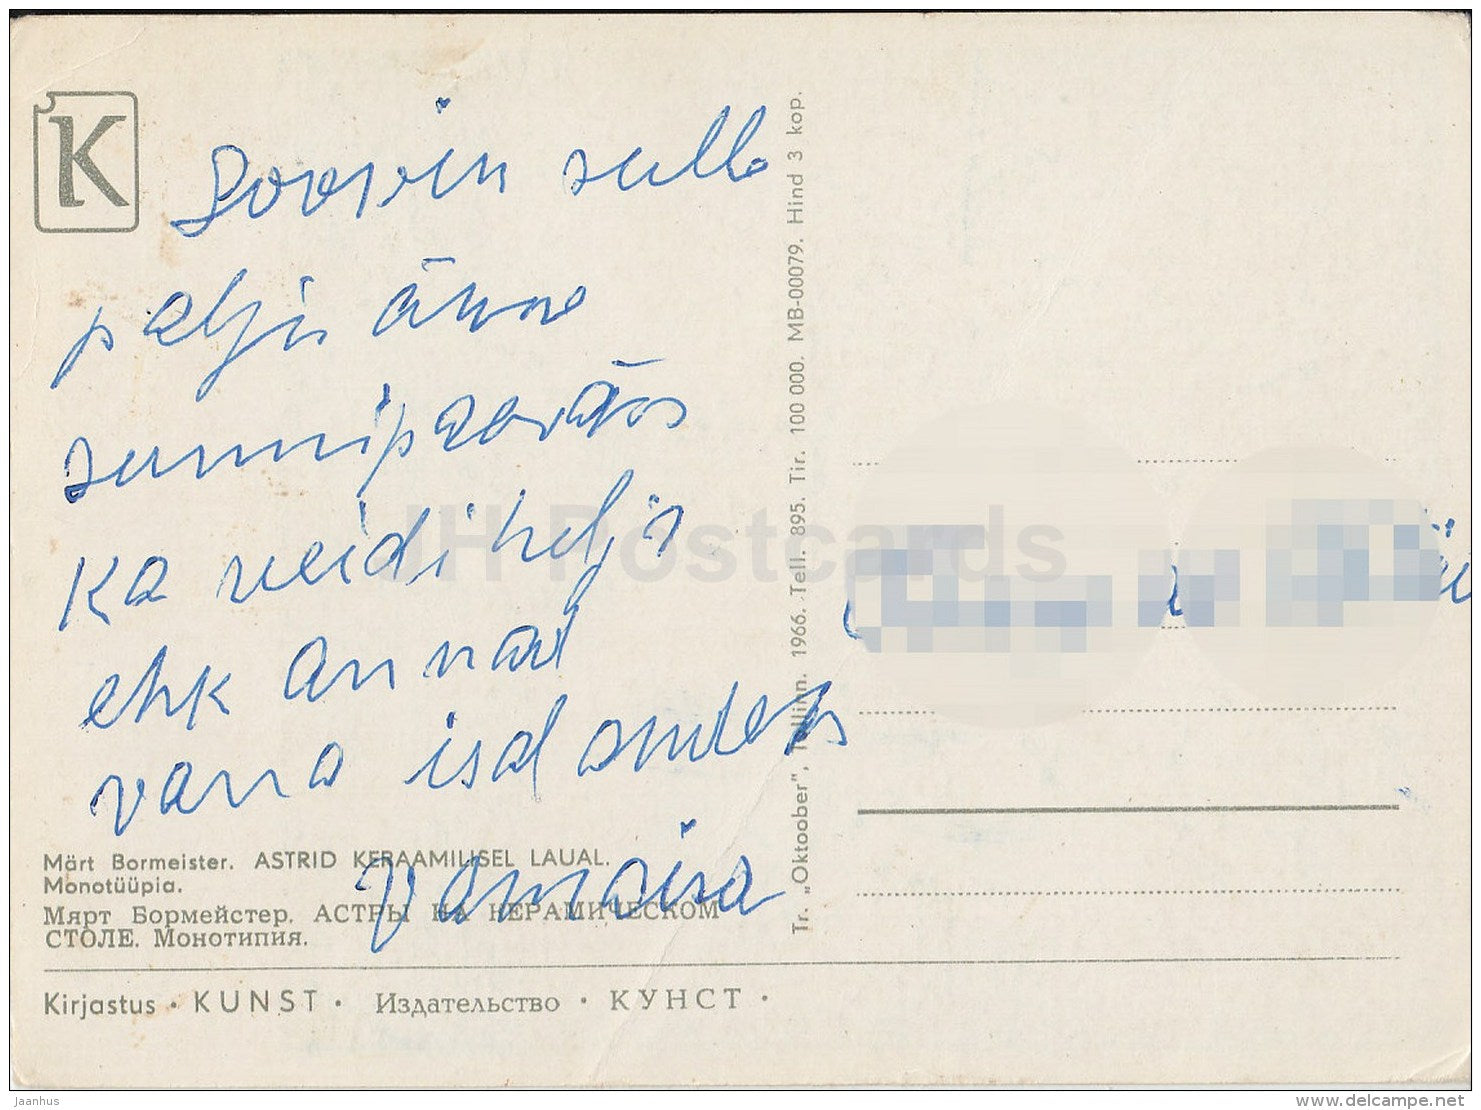 K
Soovin sulle
palju õnne
sünnipäeväs
ka veidi helju
ehk annad
vana isal andeks
vanaisa
Märt Bormeister. ASTRID KERAAMILISEL LAUAL.
Monotüüpia.
Мярт Бормейстер. АСТРЫ НА КЕРАМИЧЕСКОМ
СТОЛЕ. Монотипия.
Kirjastus · KUNST · Издательство · КУНСТ ·
Tr. „Oktoober”, Tallinn. 1966. Tell. 895. Tir. 100 000. MB-00079. Hind 3 kop.
JH Postcards
Jaanhus
delcampe.net